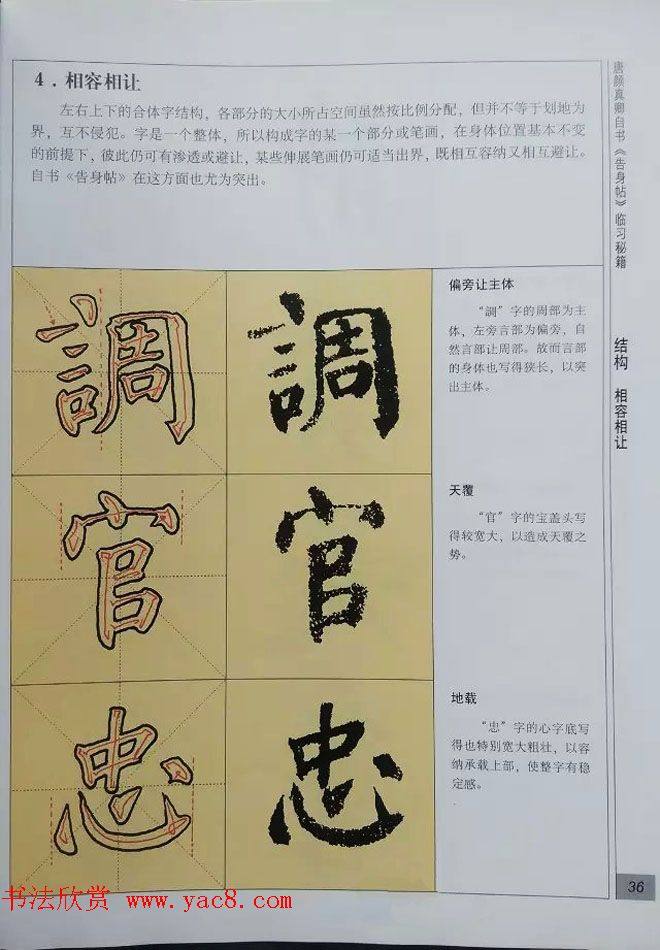 4．相容相让
左右上下的合体字结构，各部分的大小所占空间虽然按比例分配，但并不等于划地为
界，互不侵犯。字是一个整体，所以构成字的某一个部分或笔画，在身体位置基本不变
的前提下，彼此仍可有渗透或避让，某些伸展笔画仍可适当出界，既相互容纳又相互避让。
自书《告身帖》在这方面也尤为突出。
調 調
偏旁让主体
“調”字的周部为主
体，左旁言部为偏旁，自
然言部让周部。故而言部
的身体也写得狭长，以突
出主体。
官 官
天覆
“官”字的宝盖头写
得较宽大，以造成天覆之
势。
忠 忠
地载
“忠”字的心字底写
得也特别宽大粗壮，以容
纳承载上部，使整字有稳
定感。
唐颜真卿自书《告身帖》临习秘籍
结构 相容相让
36
书法欣赏 www.yac8.com